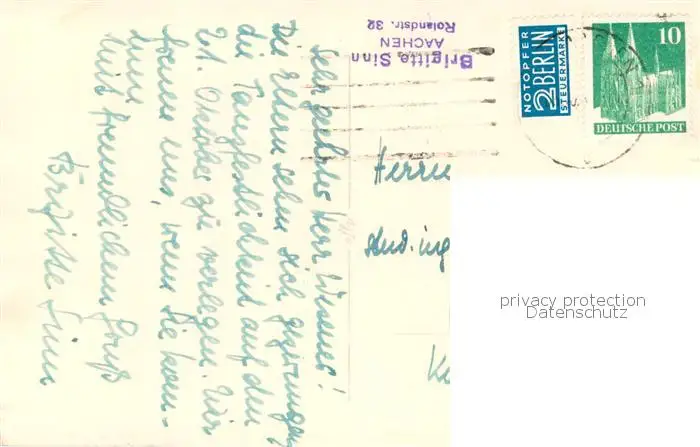 Sehr geehrter Herr Wiesner!
Die Eltern sehen sich gezwungen,
die Tanzfestlichkeit auf den
21. Oktober zu verlegen. Wir
freuen uns, wenn Sie kom-
men.
Mit freundlichem Gruß
Brigitte Sinn
Brigitte Sinn
AACHEN
Rolandstr. 32
NOTOPFER
2 BERLIN
STEUERMARKE
10
DEUTSCHE POST
Herrn
stud. ing.
privacy protection
Datenschutz